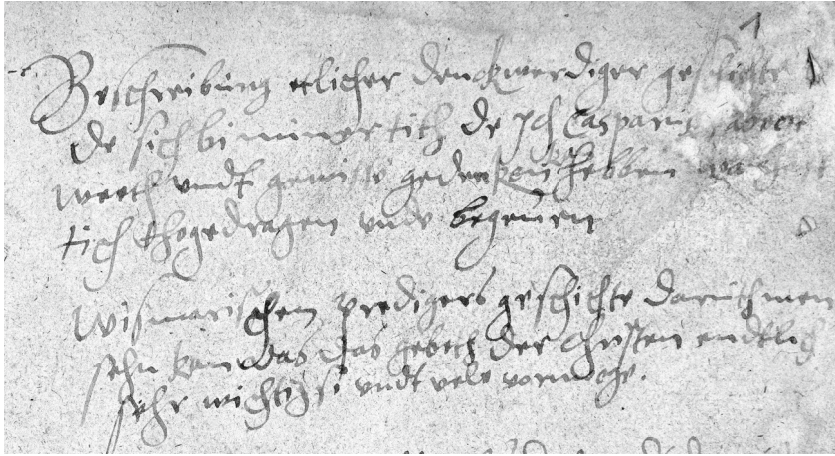 1
Beschreibung etlicher denckwerdiger geschichte
de sich bi miner tich de Ich Casparus
weeth vndt gewisse gedencken hebben
tich thogedragen vnde begeuen
Wismarischen predigers geschichte daruth men
sehn kan das das gebeth der Christen endtlich
sehr wichtig si vndt vele vormoge.